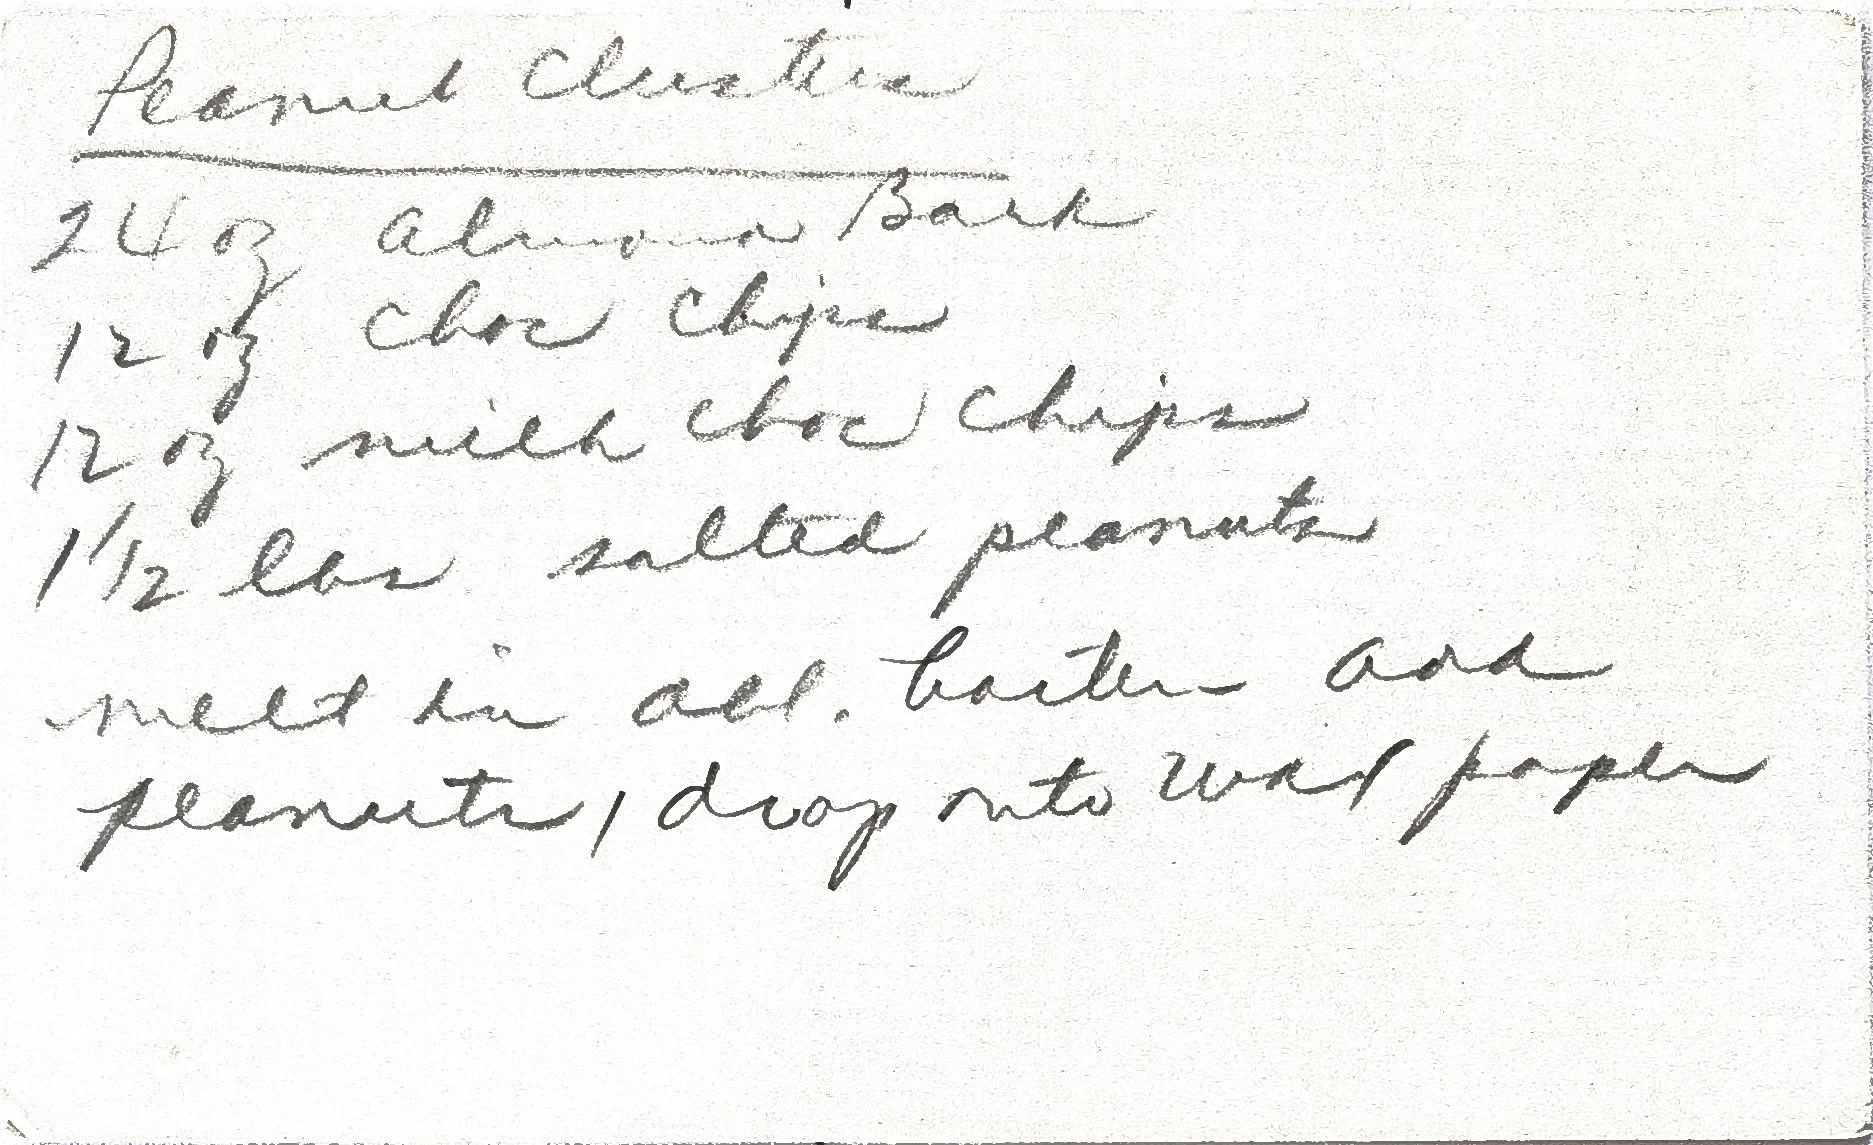 Peanut Clusters
24 oz Almond Bark
12 oz choc chips
12 oz milk choc chips
1 1/2 lbs salted peanuts
melt in dbl. boiler add
peanuts, drop onto wax paper